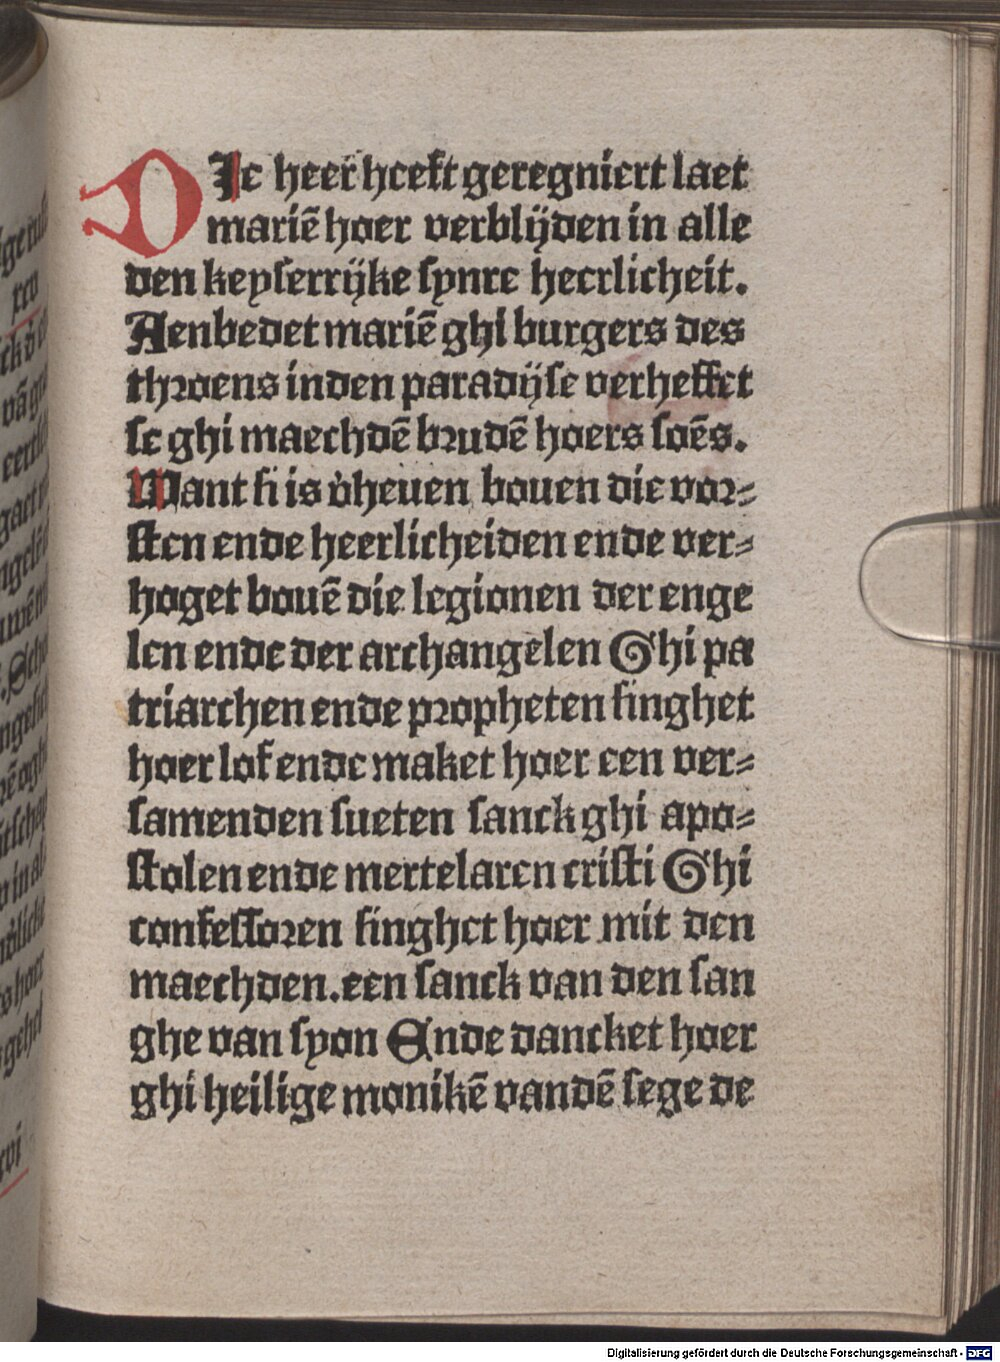 DIe heer heeft geregniert laet
mariē hoer verblijden in alle
den keyserrijke synre heerlicheit.
Aenbedet mariē ghi burgers des
throens inden paradijse verheffet
se ghi maechdē brudē hoers soēs.
Want si is v̓heuen bouen die vor⸗
sten ende heerlicheiden ende ver⸗
hoget bouē die legionen der enge
len ende der archangelen Ghi pa
triarchen ende propheten singhet
hoer lof ende maket hoer een ver⸗
samenden sueten sanck ghi apo⸗
stolen ende mertelaren cristi Ghi
confessoren singhet hoer mit den
maechden. een sanck van den san
ghe van syon Ende dancket hoer
ghi heilige monikē vandē sege de
Digitalisierung gefördert durch die Deutsche Forschungsgemeinschaft - DFG